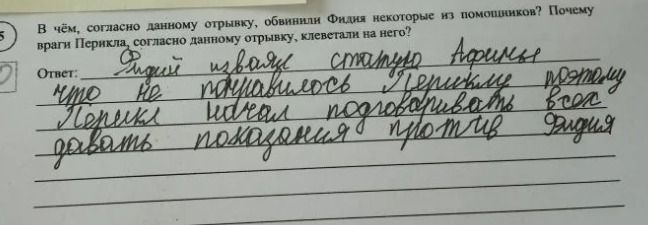 5
В чём, согласно данному отрывку, обвинили Фидия некоторые из помощников? Почему
враги Перикла, согласно данному отрывку, клеветали на него?
Ответ: Фидий изваял статую Афины
что не понравилось Периклу поэтому
Перикл начал подговаривать всех
давать показания против Фидия